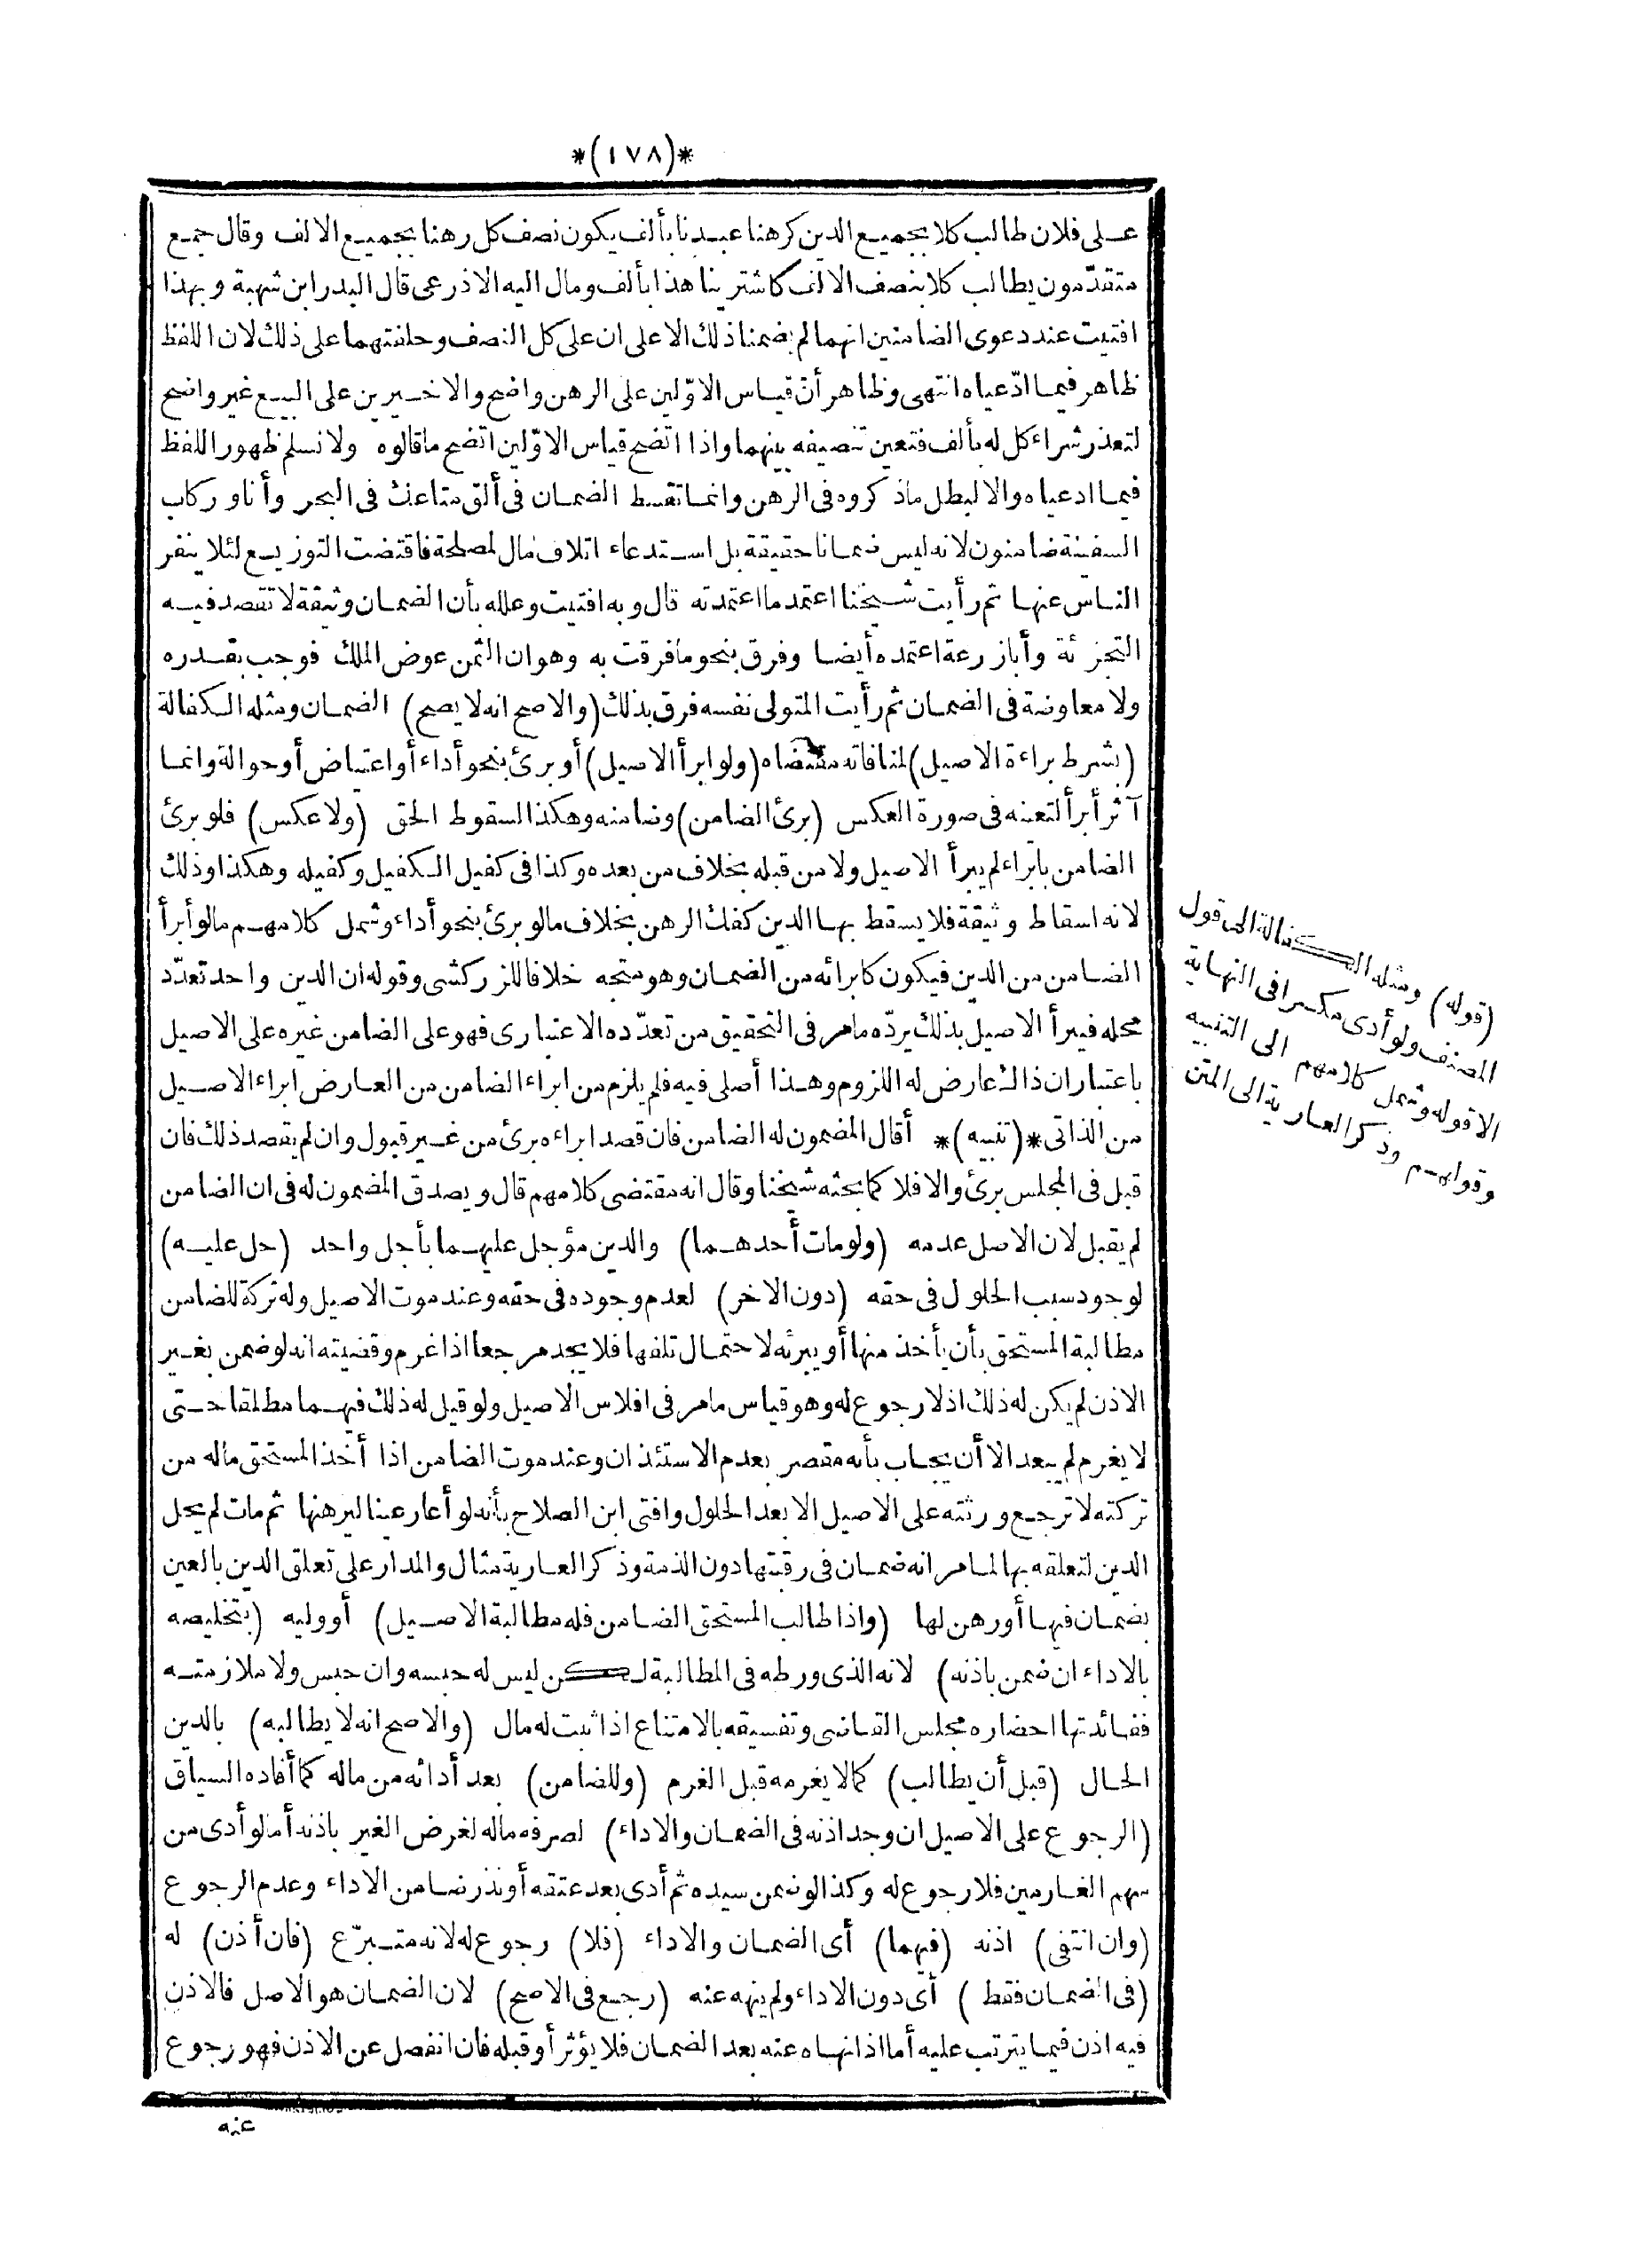 *(١٧٨)*
على فلان طالب كلا بجميع الدين كرهنا عبدنا بألف يكون نصف كل رهنا بجميع الالف وقال جمع
متقدّمون يطالب كلا بنصف الالف كاشترينا هذا بألف ومال اليه الاذرعى قال البدر ابن شهبة وبهذا
افتيت عند دعوى الضامنين انهما لم يضمنا ذلك الا على ان على كل النصف وحلفتهما على ذلك لان اللفظ
ظاهر فيما ادّعياه انتهى وظاهر أنّ قياس الاوّلين على الرهن واضح والاخيرين على البيع غير واضح
لتعذر شراء كل له بألف فتعين تنصيفه بينهما واذا اتضح قياس الاوّلين اتضح ما قالوه ولا نسلم ظهور اللفظ
فيما ادعياه والا لبطل ماذكروه فى الرهن وانما تقسط الضمان فى ألق متاعك فى البحر وأنا وركاب
السفينة ضامنون لانه ليس ضمانا حقيقة بل استدعاء اتلاف مال لمصلحة فاقتضت التوزيع لئلا ينفر
الناس عنها ثم رأيت شيخنا اعتمد ما اعتمدته قال وبه افتيت وعلله بأن الضمان وثيقة لا تقصد فيه
التجزئة وأبا زرعة اعتمده أيضا وفرق بنحو ما فرقت به وهو ان الثمن عوض الملك فوجب بقدره
ولا معاوضة فى الضمان ثم رأيت المتولى نفسه فرق بذلك (والاصح انه لا يصح) الضمان ومثله الكفالة
(بشرط براءة الاصيل) لمنافاته مقتضاه (ولو ابرأ الاصيل) أو برئ بنحو أداء أو اعتياض أو حوالة وانما
آثر أبرأ لتعينه فى صورة العكس (برئ الضامن) وضامنه وهكذا لسقوط الحق (ولا عكس) فلو برئ
الضامن بابراء لم يبرأ الاصيل ولا من قبله بخلاف من بعده وكذا فى كفيل الكفيل وكفيله وهكذا وذلك
لانه اسقاط وثيقة فلا يسقط بها الدين كفك الرهن بخلاف ما لو برئ بنحو أداء وشمل كلامهم ما لو أبرأ
الضامن من الدين فيكون كابرائه من الضمان وهو متجه خلافا للزركشى وقوله ان الدين واحد تعدّد
محله فيبرأ الاصيل بذلك يردّه مامر فى التحقيق من تعدّده الاعتبارى فهو على الضامن غيره على الاصيل
باعتبار ان ذاك عارض له اللزوم وهذا أصلى فيه فلم يلزم من ابراء الضامن من العارض ابراء الاصيل
من الذاتى *(تنبيه)* أقال المضمون له الضامن فان قصد ابراءه برئ من غير قبول وان لم يقصد ذلك فان
قبل فى المجلس برئ والا فلا كما بحثه شيخنا وقال انه مقتضى كلامهم قال ويصدق المضمون له فى ان الضامن
لم يقبل لان الاصل عدمه (ولو مات أحدهما) والدين مؤجل عليهما بأجل واحد (حل عليه)
لوجود سبب الحلول فى حقه (دون الاخر) لعدم وجوده فى حقه وعند موت الاصيل وله تركة للضامن
مطالبة المستحق بأن يأخذ منها أو يبرئه لاحتمال تلفها فلا يجد مرجعا اذا غرم وقضيته انه لو ضمن بغير
الاذن لم يكن له ذلك اذ لا رجوع له وهو قياس مامر فى افلاس الاصيل ولو قيل له ذلك فيهما مطلقا حتى
لا يغرم لم يبعد الا أن يجاب بأنه مقصر بعدم الاستئذان وعند موت الضامن اذا أخذ المستحق ماله من
تركته لا ترجع ورثته على الاصيل الا بعد الحلول وافتى ابن الصلاح بأنه لو أعار عينا ليرهنها ثم مات لم يحل
الدين لتعلقه بها لما مر انه ضمان فى رقبتها دون الذمة وذكر العارية مثال والمدار على تعلق الدين بالعين
بضمان فيها أو رهن لها (واذا طالب المستحق الضامن فله مطالبة الاصيل) أو وليه (بتخليصه
بالاداء ان ضمن باذنه) لانه الذى ورطه فى المطالبة لكن ليس له حبسه وان حبس ولا ملازمته
ففائدتها احضاره مجلس القاضى وتفسيقه بالامتناع اذا ثبت له مال (والاصح انه لا يطالبه) بالدين
الحال (قبل أن يطالب) كما لا يغرمه قبل الغرم (وللضامن) بعد أدائه من ماله كما أفاده السياق
(الرجوع على الاصيل ان وجد اذنه فى الضمان والاداء) لصرفه ماله لغرض الغير باذنه أما لو أدى من
سهم الغارمين فلا رجوع له وكذا لو ضمن سيده ثم أدى بعد عتقه أو نذر ضامن الاداء وعدم الرجوع
(وان انتفى) اذنه (فيهما) أى الضمان والاداء (فلا) رجوع له لانه متبرّع (فان أذن) له
(فى الضمان فقط) أى دون الاداء ولم ينهه عنه (رجع فى الاصح) لان الضمان هو الاصل فالاذن
فيه اذن فيما يترتب عليه أما اذا نهاه عنه بعد الضمان فلا يؤثر أو قبله فان انفصل عن الاذن فهو رجوع
عنه
(قوله) ومثله الكفالة الى قول
المصنف ولو أدى مكسرا فى النهاية
الا قوله وشمل كلامهم الى التنبيه
وقوله وذكر العارية الى المتن